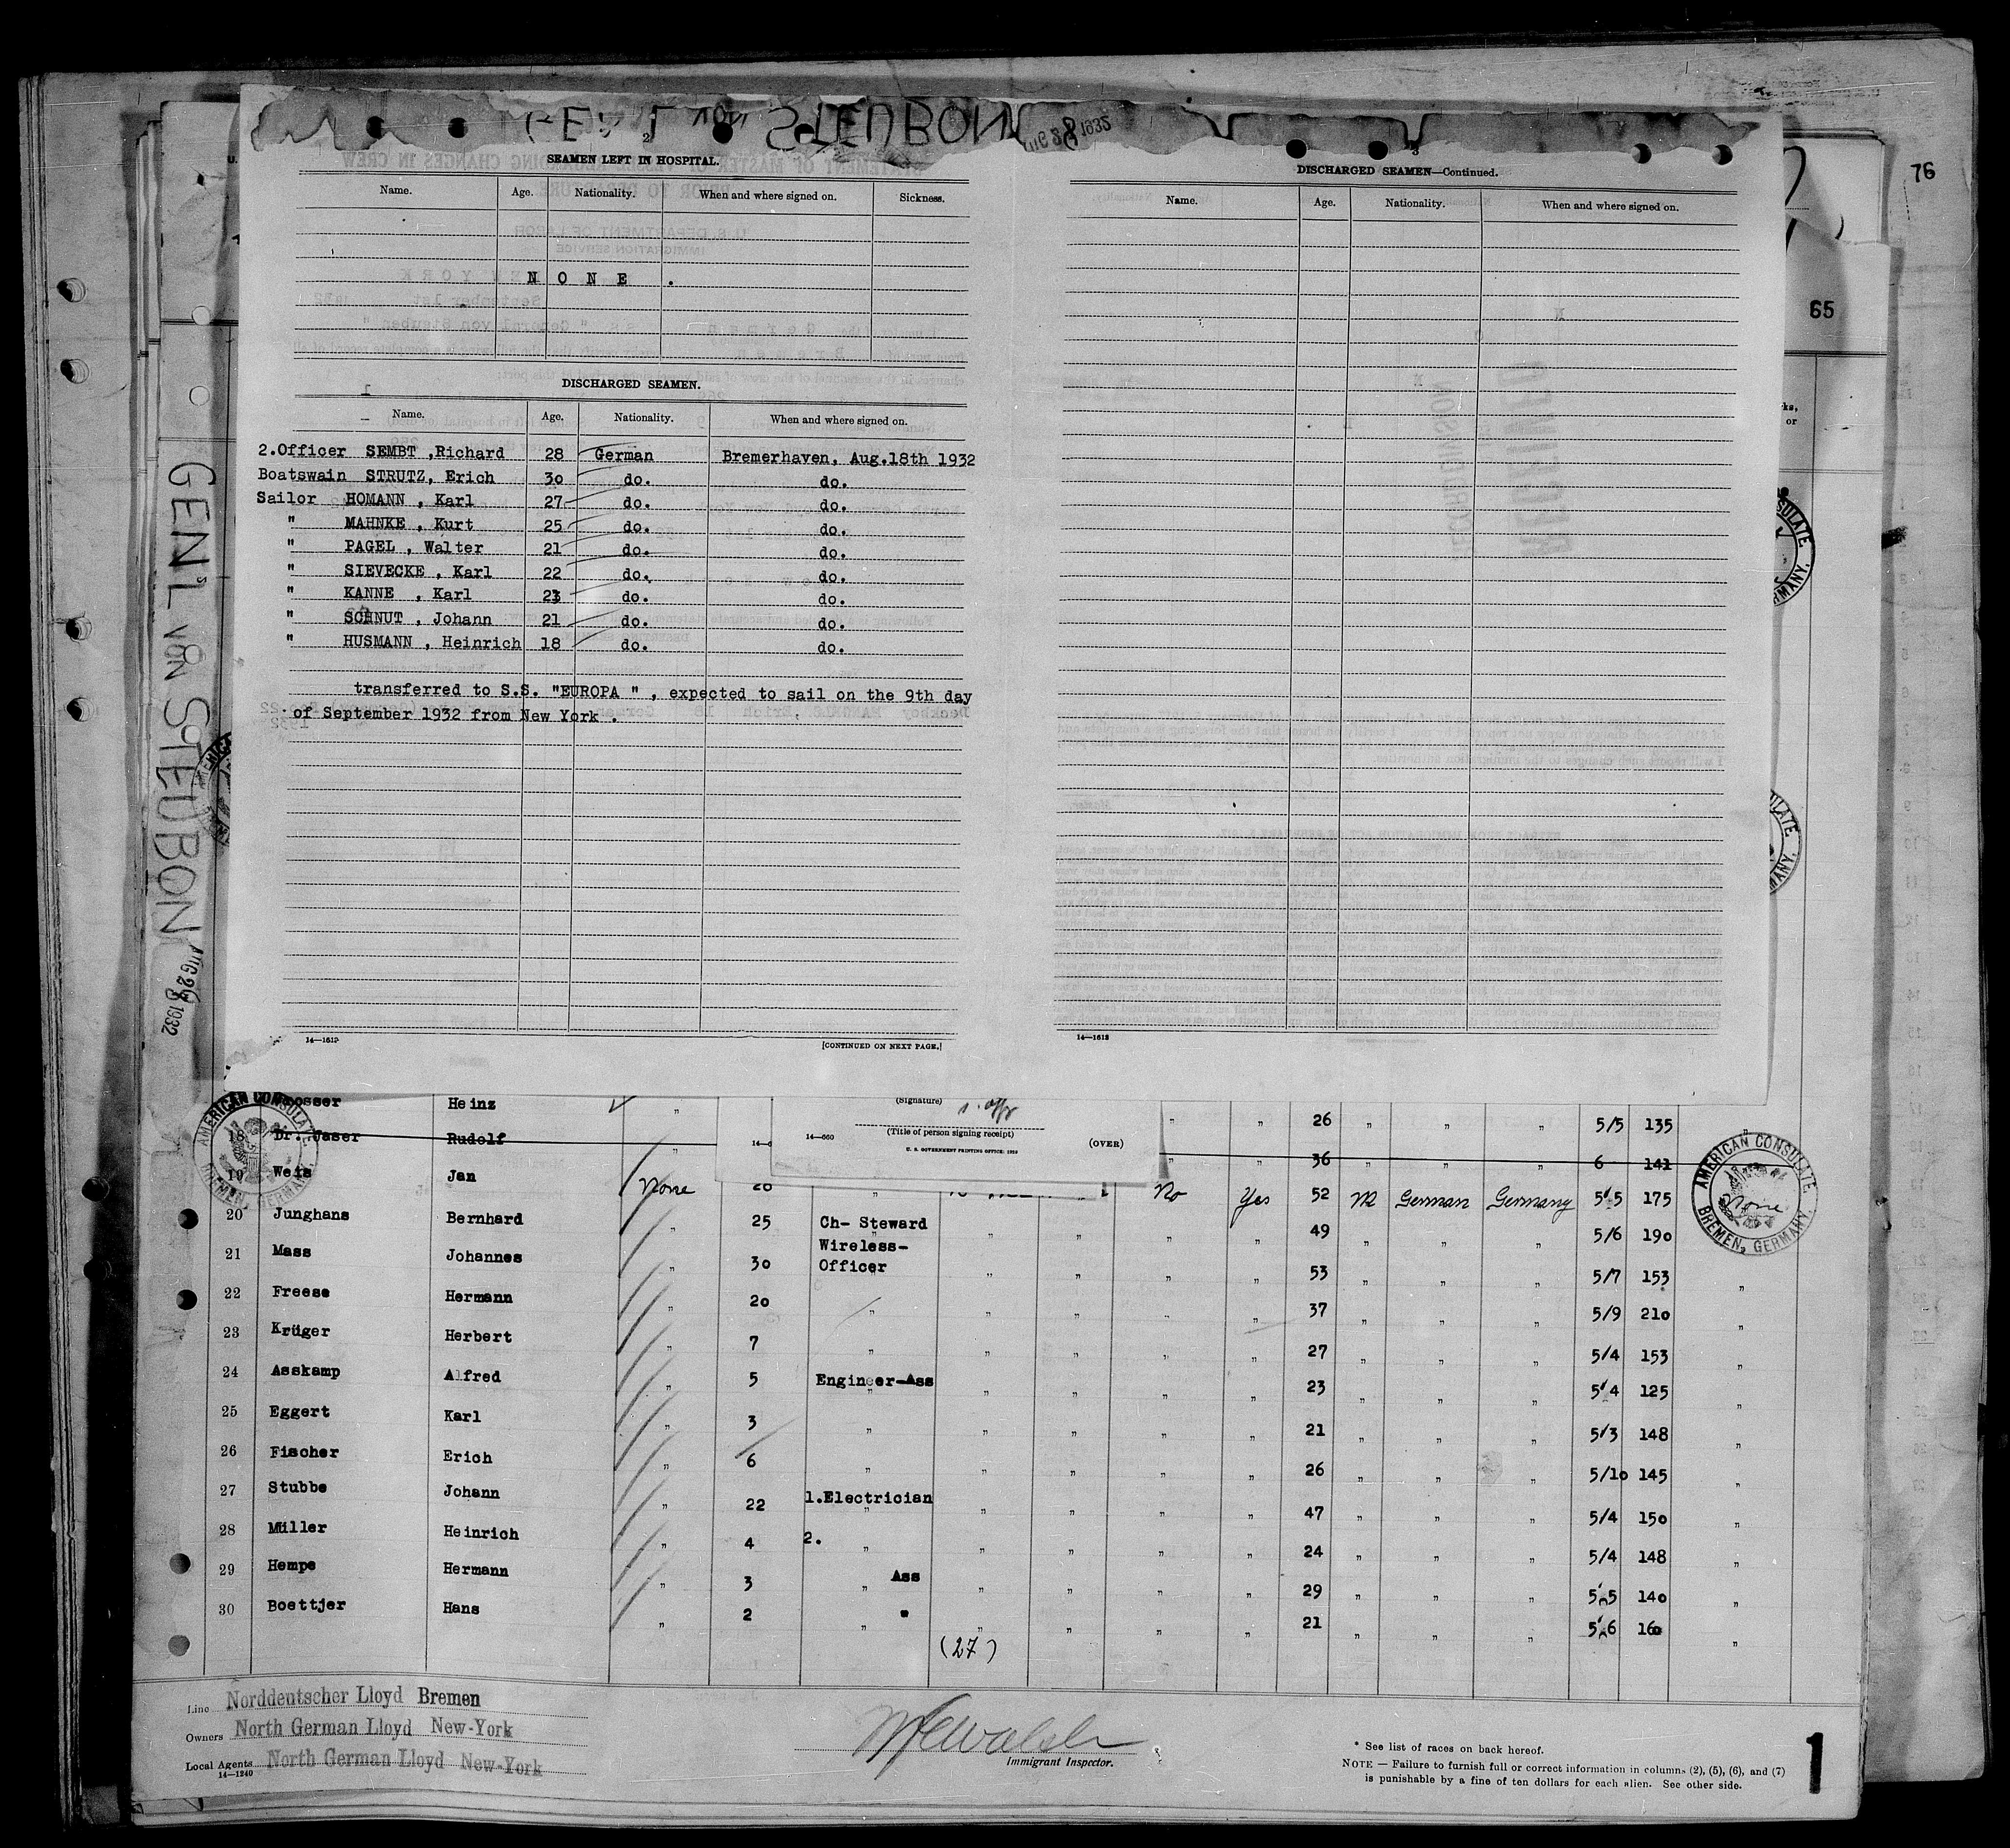 76
65
GENL VON STEUBON
AUG 28 1932
2
SEAMEN LEFT IN HOSPITAL.
Name. Age. Nationality. When and where signed on. Sickness.
N O N E .
DISCHARGED SEAMEN.
1
Name. Age. Nationality. When and where signed on.
2.Officer SEMBT ,Richard 28 German Bremerhaven, Aug.18th 1932
Boatswain STRUTZ, Erich 30 do. do.
Sailor HOMANN , Karl 27 do. do.
" MAHNKE , Kurt 25 do. do.
" PAGEL , Walter 21 do. do.
" SIEVECKE , Karl 22 do. do.
" KANNE , Karl 23 do. do.
" SCHNUT , Johann 21 do. do.
" HUSMANN , Heinrich 18 do. do.
transferred to S.S. "EUROPA " , expected to sail on the 9th day
of September 1932 from New York .
14—1612 [CONTINUED ON NEXT PAGE.]
3
DISCHARGED SEAMEN—Continued.
Name. Age. Nationality. When and where signed on.
14—1612
(Signature)
(Title of person signing receipt)
14—660 (OVER)
U. S. GOVERNMENT PRINTING OFFICE: 1929
Heinz " " " 26 " " " 5/5 135 "
18 Dr. Jaser Rudolf " " " 36 " " " 6 141
19 Weis Jan None No Yes 52 M German Germany 5'5 175 None
20 Junghans Bernhard " 25 Ch- Steward " " " " 49 " " " 5/6 190
21 Mass Johannes " 30 Wireless-
Officer " " " " 53 " " " 5/7 153 "
22 Freese Hermann " 20 " " " " " 37 " " " 5/9 210 "
23 Krüger Herbert " 7 " " " " " 27 " " " 5/4 153 "
24 Asskamp Alfred " 5 Engineer-Ass " " " " 23 " " " 5'4 125 "
25 Eggert Karl " 3 " " " " " 21 " " " 5/3 148 "
26 Fischer Erich " 6 " " " " " 26 " " " 5/10 145 "
27 Stubbe Johann " 22 1.Electrician " " " " 47 " " " 5/4 150 "
28 Müller Heinrich " 4 2. " " " " " 24 " " " 5/4 148 "
29 Hempe Hermann " 3 " Ass " " " " 29 " " " 5'5 140 "
30 Boettjer Hans " 2 " " " " " " 21 " " " 5'6 160 "
(27)
AMERICAN CONSULATE
BREMEN, GERMANY.
AMERICAN CONSULATE
BREMEN, GERMANY.
Line Norddeutscher Lloyd Bremen
Owners North German Lloyd New-York
Local Agents North German Lloyd New-York
14—1240
Immigrant Inspector.
* See list of races on back hereof.
NOTE — Failure to furnish full or correct information in columns (2), (5), (6), and (7)
is punishable by a fine of ten dollars for each alien. See other side.
1